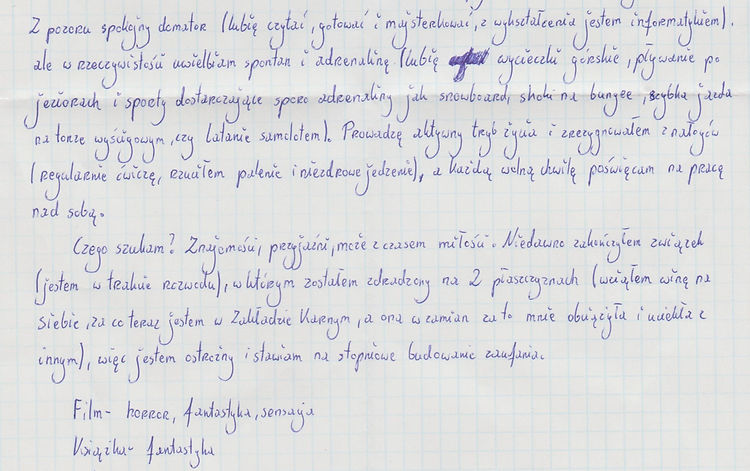 Z pozoru spokojny domator (lubię czytać, gotować i majsterkować, z wykształcenia jestem informatykiem),
ale w rzeczywistości uwielbiam spontan i adrenalinę (lubię wycieczki górskie, pływanie po
jeziorach i sporty dostarczające sporo adrenaliny jak snowboard, skoki na bungee, szybka jazda
na torze wyścigowym, czy latanie samolotem). Prowadzę aktywny tryb życia i zrezygnowałem z nałogów
(regularnie ćwiczę, rzuciłem palenie i niezdrowe jedzenie), a każdą wolną chwilę poświęcam na pracę
nad sobą.
Czego szukam? Znajomości, przyjaźni, może z czasem miłości. Niedawno zakończyłem związek
(jestem w trakcie rozwodu), w którym zostałem zdradzony na 2 płaszczyznach (wziąłem winę na
siebie, za co teraz jestem w Zakładzie Karnym, a ona w zamian za to mnie obciążyła i uciekła z
innym), więc jestem ostrożny i stawiam na stopniowe budowanie zaufania.
Film - horror, fantastyka, sensacja
Książka - fantastyka